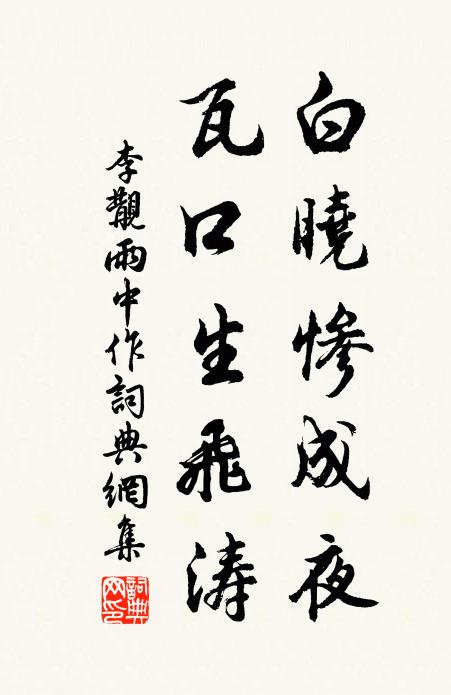 白曉慘成夜
瓦口生飛濤
李觀雨中作詞典網集
詞典網印